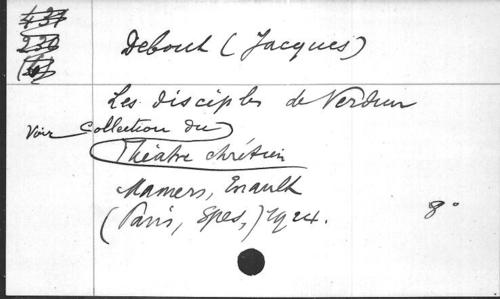 Debout (Jacques)
Les disciples de Verdun
Voir Collection du
Théâtre chrétien
Mamers, Enault
(Paris, Spes,) 1924. 8°